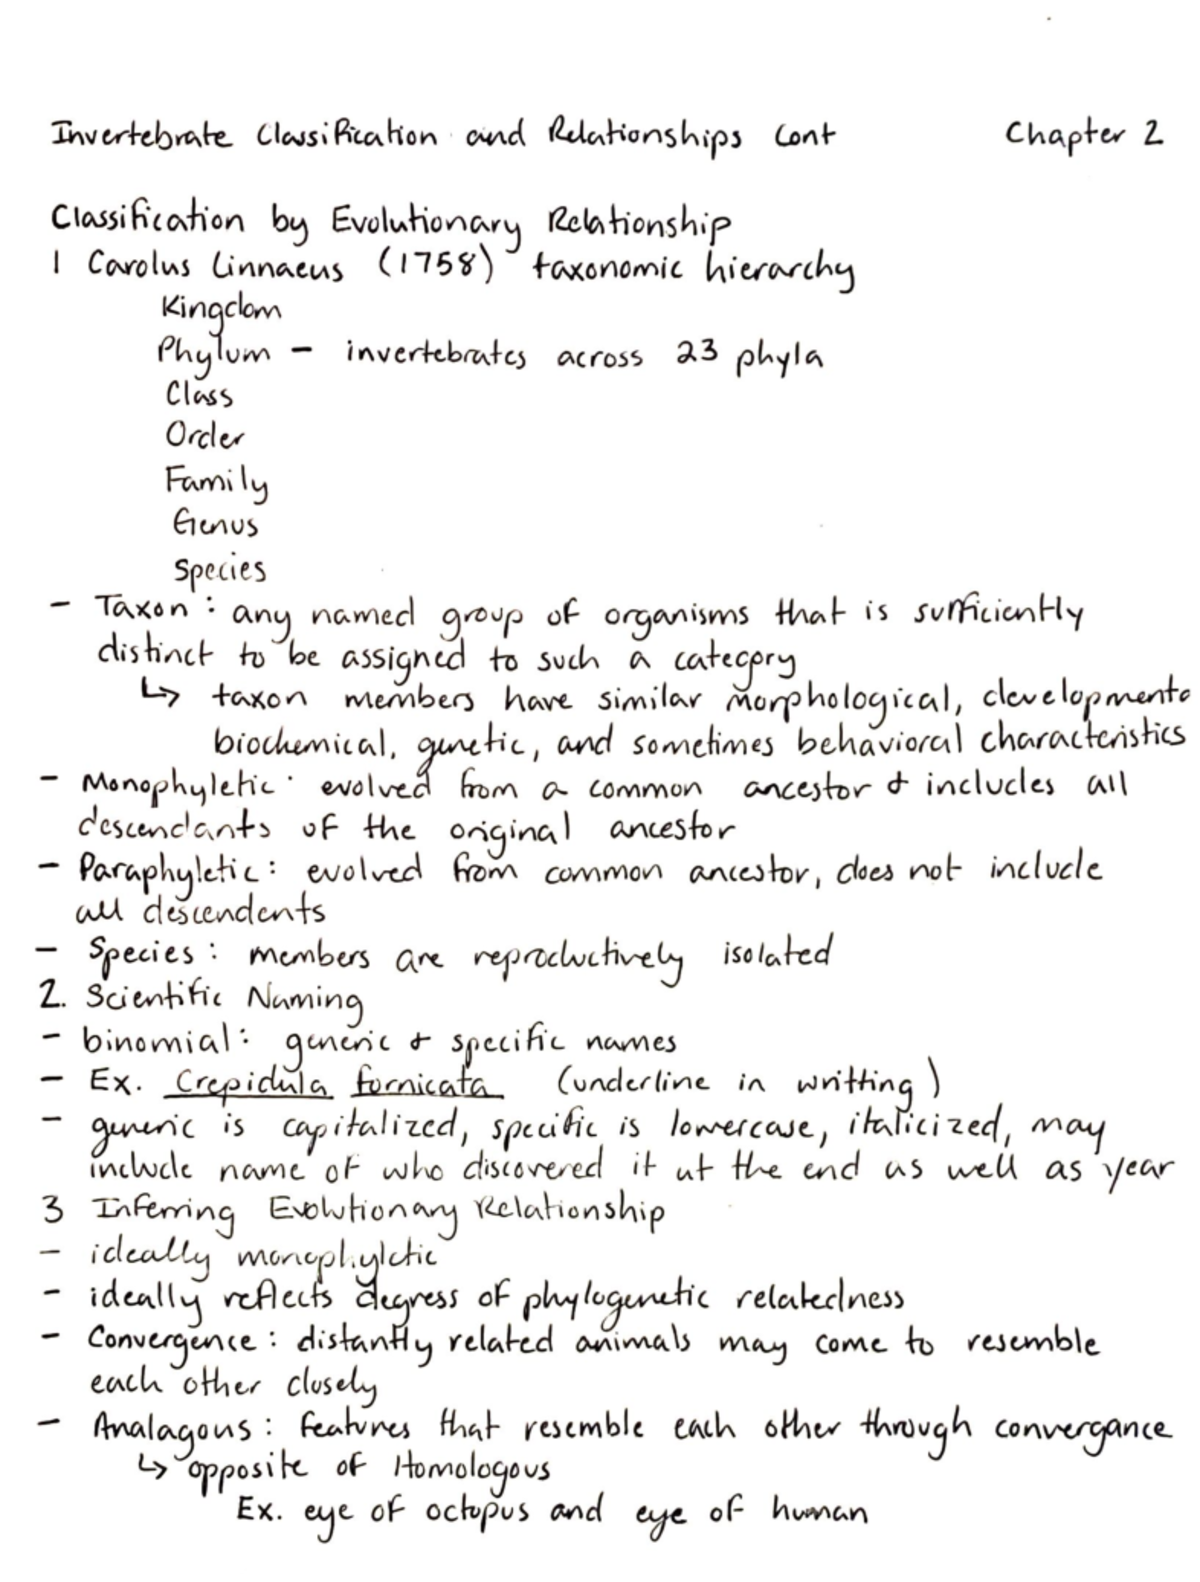 Invertebrate Classification and Relationships Cont Chapter 2
Classification by Evolutionary Relationship
1 Carolus Linnaeus (1758) taxonomic hierarchy
Kingdom
Phylum - invertebrates across 23 phyla
Class
Order
Family
Genus
Species
- Taxon: any named group of organisms that is sufficiently
distinct to be assigned to such a category
↳ taxon members have similar morphological, developmenta
biochemical, genetic, and sometimes behavioral characteristics
- Monophyletic: evolved from a common ancestor & includes all
descendants of the original ancestor
- Paraphyletic: evolved from common ancestor, does not include
all descendents
- Species: members are reproductively isolated
2. Scientific Naming
- binomial: generic & specific names
- Ex. Crepidula fornicata (underline in writting)
- generic is capitalized, specific is lowercase, italicized, may
include name of who discovered it at the end as well as year
3 Inferring Evolutionary Relationship
- ideally monophyletic
- ideally reflects degress of phylogenetic relatedness
- Convergence: distantly related animals may come to resemble
each other closely
- Analagous: features that resemble each other through convergance
↳ opposite of Homologous
Ex. eye of octopus and eye of human